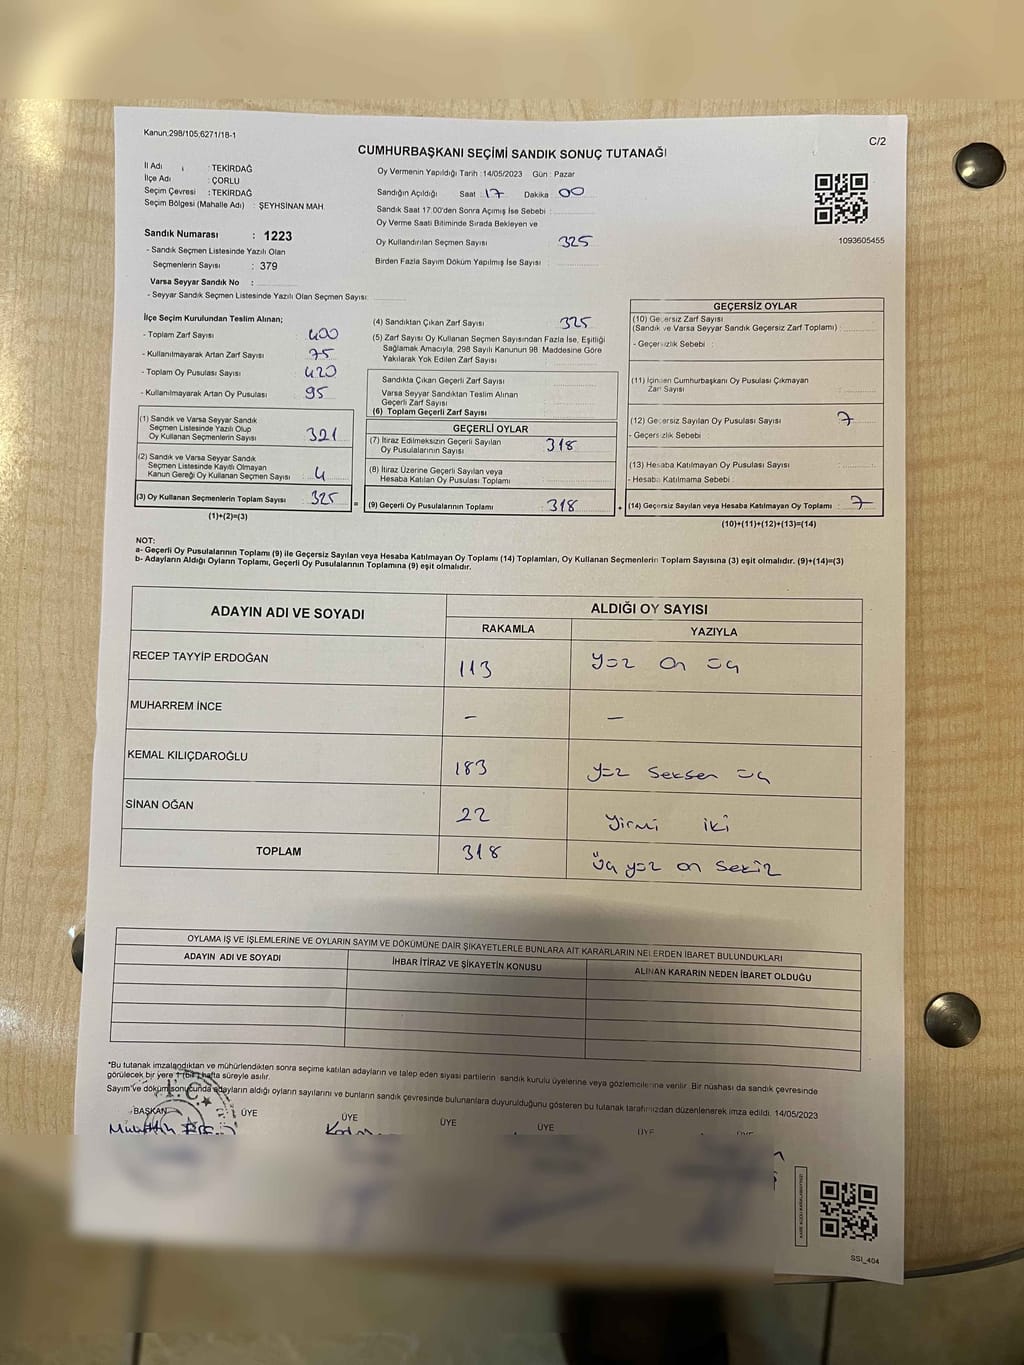 Kanun:298/105;6271/18-1
C/2
CUMHURBAŞKANI SEÇİMİ SANDIK SONUÇ TUTANAĞI
İl Adı : TEKİRDAĞ
İlçe Adı : ÇORLU
Seçim Çevresi : TEKİRDAĞ
Seçim Bölgesi (Mahalle Adı) : ŞEYHSİNAN MAH.
Sandık Numarası : 1223
- Sandık Seçmen Listesinde Yazılı Olan
Seçmenlerin Sayısı : 379
Varsa Seyyar Sandık No :
- Seyyar Sandık Seçmen Listesinde Yazılı Olan Seçmen Sayısı:
Oy Vermenin Yapıldığı Tarih :14/05/2023 Gün : Pazar
Sandığın Açıldığı Saat : 17 Dakika : 00
Sandık Saat 17:00'den Sonra Açımış İse Sebebi :
Oy Verme Saati Bitiminde Sırada Bekleyen ve
Oy Kullandırılan Seçmen Sayısı 325
Birden Fazla Sayım Döküm Yapılmış İse Sayısı :
1093605455
İlçe Seçim Kurulundan Teslim Alınan;
- Toplam Zarf Sayısı : 400
- Kullanılmayarak Artan Zarf Sayısı : 75
- Toplam Oy Pusulası Sayısı : 420
- Kullanılmayarak Artan Oy Pusulası : 95
(1) Sandık ve Varsa Seyyar Sandık
Seçmen Listesinde Yazılı Olup
Oy Kullanan Seçmenlerin Sayısı : 321
(2) Sandık ve Varsa Seyyar Sandık
Seçmen Listesinde Kayıtlı Olmayan
Kanun Gereği Oy Kullanan Seçmen Sayısı : 4
(3) Oy Kullanan Seçmenlerin Toplam Sayısı : 325
(1)+(2)=(3)
(4) Sandıktan Çıkan Zarf Sayısı : 325
(5) Zarf Sayısı Oy Kullanan Seçmen Sayısından Fazla İse, Eşitliği
Sağlamak Amacıyla, 298 Sayılı Kanunun 98. Maddesine Göre
Yakılarak Yok Edilen Zarf Sayısı
Sandıkta Çıkan Geçerli Zarf Sayısı
Varsa Seyyar Sandıktan Teslim Alınan
Geçerli Zarf Sayısı
(6) Toplam Geçerli Zarf Sayısı
GEÇERLİ OYLAR
(7) İtiraz Edilmeksizin Geçerli Sayılan
Oy Pusulalarının Sayısı : 318
(8) İtiraz Üzerine Geçerli Sayılan veya
Hesaba Katılan Oy Pusulası Toplamı
= (9) Geçerli Oy Pusulalarının Toplamı : 318
GEÇERSİZ OYLAR
(10) Geçersiz Zarf Sayısı
(Sandık ve Varsa Seyyar Sandık Geçersiz Zarf Toplamı) :
- Geçersizlik Sebebi :
(11) İçinden Cumhurbaşkanı Oy Pusulası Çıkmayan
Zarf Sayısı
(12) Geçersiz Sayılan Oy Pusulası Sayısı : 7
- Geçersizlik Sebebi
(13) Hesaba Katılmayan Oy Pusulası Sayısı
- Hesaba Katılmama Sebebi :
+ (14) Geçersiz Sayılan veya Hesaba Katılmayan Oy Toplamı : 7
(10)+(11)+(12)+(13)=(14)
NOT:
a- Geçerli Oy Pusulalarının Toplamı (9) ile Geçersiz Sayılan veya Hesaba Katılmayan Oy Toplamı (14) Toplamları, Oy Kullanan Seçmenlerin Toplam Sayısına (3) eşit olmalıdır. (9)+(14)=(3)
b- Adayların Aldığı Oyların Toplamı, Geçerli Oy Pusulalarının Toplamına (9) eşit olmalıdır.
ADAYIN ADI VE SOYADI
ALDIĞI OY SAYISI
RAKAMLA YAZIYLA
RECEP TAYYİP ERDOĞAN 113 yüz on üç
MUHARREM İNCE - -
KEMAL KILIÇDAROĞLU 183 yüz seksen üç
SİNAN OĞAN 22 yirmi iki
TOPLAM 318 üç yüz on sekiz
OYLAMA İŞ VE İŞLEMLERİNE VE OYLARIN SAYIM VE DÖKÜMÜNE DAİR ŞİKAYETLERLE BUNLARA AİT KARARLARIN NELERDEN İBARET BULUNDUKLARI
ADAYIN ADI VE SOYADI İHBAR İTİRAZ VE ŞİKAYETİN KONUSU ALINAN KARARIN NEDEN İBARET OLDUĞU
*Bu tutanak imzalandıktan ve mühürlendikten sonra seçime katılan adayların ve talep eden siyasi partilerin sandık kurulu üyelerine veya gözlemcilerine verilir. Bir nüshası da sandık çevresinde
görülecek bir yere 1 (bir) hafta süreyle asılır.
Sayım ve döküm sonucunda adayların aldığı oyların sayılarını ve bunların sandık çevresinde bulunanlara duyurulduğunu gösteren bu tutanak tarafımızdan düzenlenerek imza edildi. 14/05/2023
BAŞKAN ÜYE ÜYE ÜYE ÜYE ÜYE ÜYE
T.C.
SSI_404